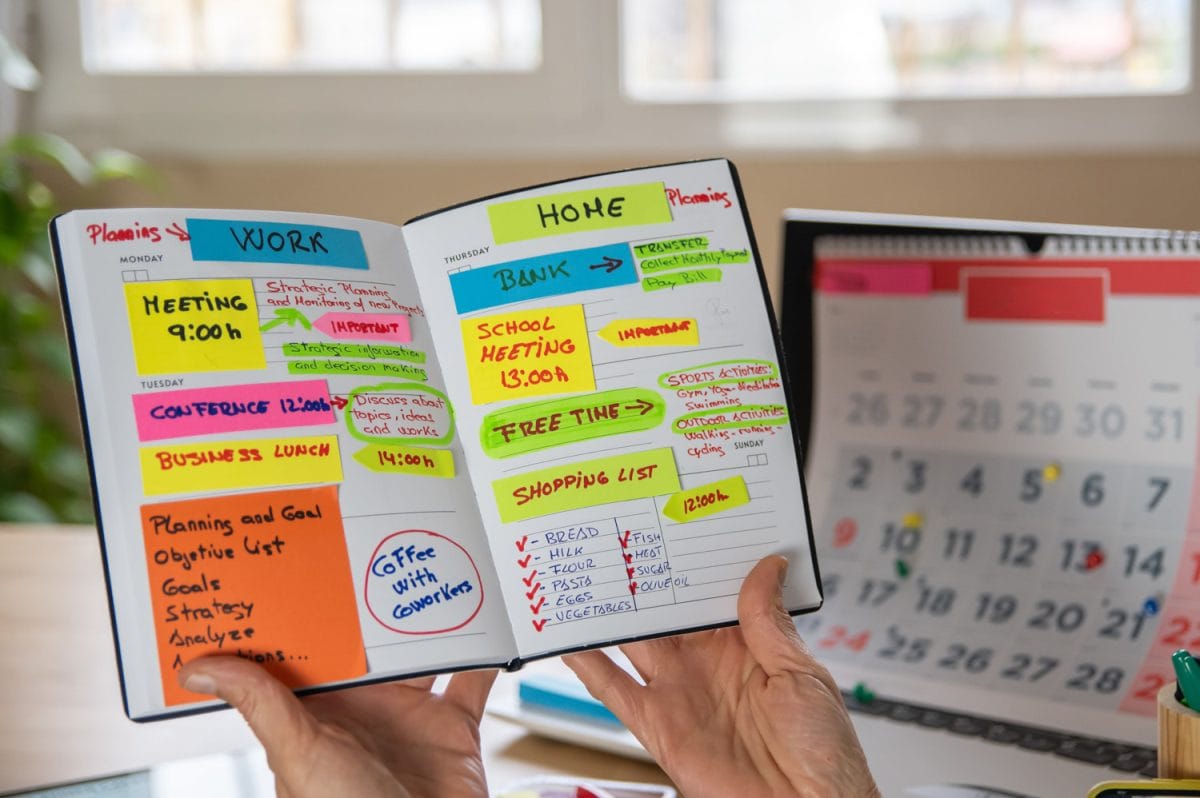 Planning
WORK
MONDAY
MEETING
9:00h
Strategic Planning
and Monitoring of new Projects
IMPORTANT
Strategic information
and decision making
TUESDAY
CONFERNCE 12:00h
Discuss about
topics, ideas
and works
BUSINESS LUNCH
14:00h
Planning and Goal
Objetive List
Goals
Strategy
Analyze
Coffee
with
coworkers
HOME
Planning
THURSDAY
BANK
TRANSFER
Collect Monthly Payment
Pay Bill
SCHOOL
MEETING
13:00h
IMPORTANT
FREE TIME
SPORTS ACTIVITIES:
Gym, Yoga, Meditation
Swimming
OUTDOOR ACTIVITIES
Walking - running -
cycling
SUNDAY
SHOPPING LIST
12:00h
- BREAD
- MILK
- FLOUR
- PASTA
- EGGS
- VEGETABLES
- FISH
- MEAT
- SUGAR
- OLIVE OIL
26 27 28 29 30 31
2 3 4 5 6 7
9 10 11 12 13 14
16 17 18 19 20 21
24 25 26 27 28